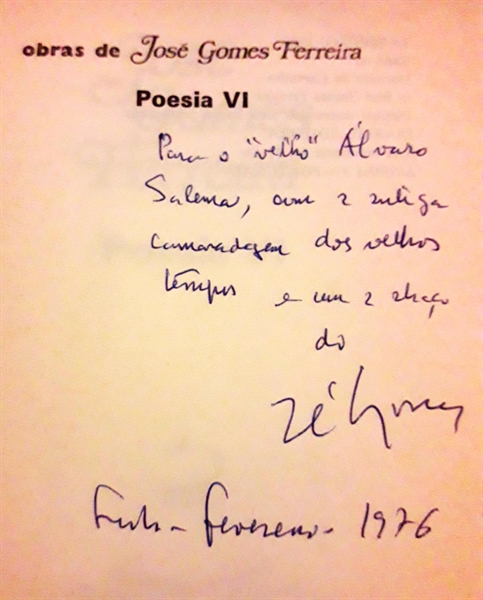 obras de José Gomes Ferreira
Poesia VI
Para o "velho" Álvaro
Salema, com a antiga
camaradagem dos velhos
tempos e um abraço
do
Zé Gomes
Fevereiro - 1976